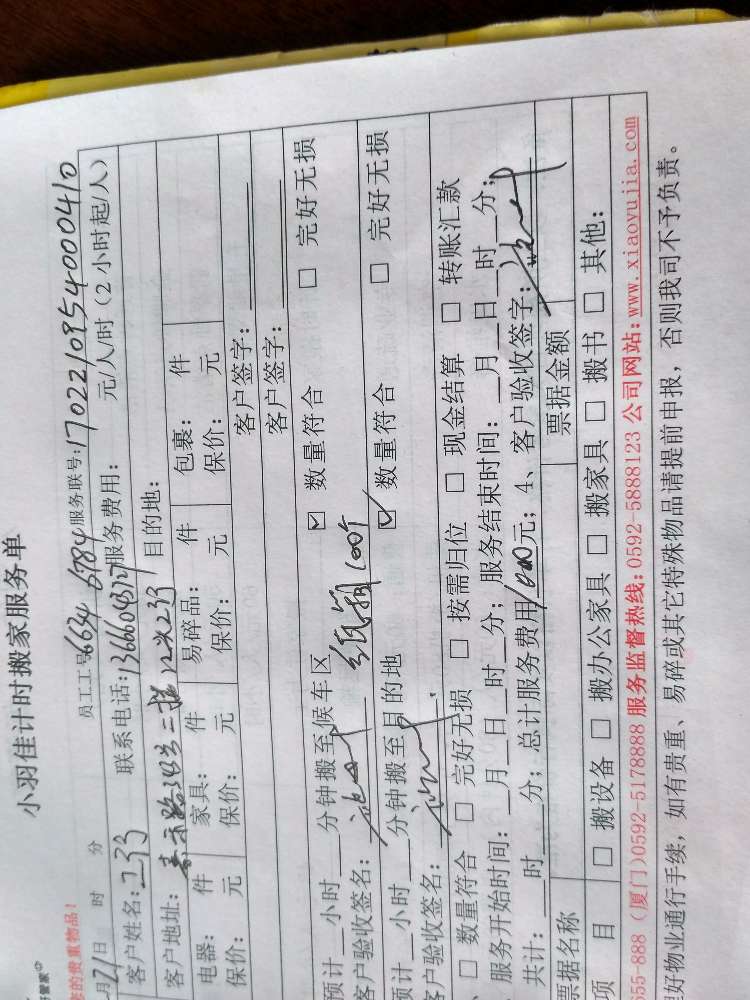 小羽佳计时搬家服务单
您的贵重物品!
月21日 时 分 员工工号6634 6784 服务联号:1702210954000410
客户姓名: 联系电话:13666043 服务费用: 元/人/时(2小时起/人)
客户地址: 目的地:
电器: 件 家具: 件 易碎品: 件 包裹: 件
保价: 元 保价: 元 保价: 元 保价: 元
客户签字:
客户签字:
预计__小时__分钟搬至候车区 ☑ 数量符合 □ 完好无损
客户验收签名: 纸箱100个
预计__小时__分钟搬至目的地 ☑ 数量符合 □ 完好无损
客户验收签名:
、□ 数量符合 □ 完好无损 □ 按需归位 □ 现金结算 □ 转账汇款
服务开始时间:__月__日__时__分;服务结束时间:__月__日__时__分;
共计:__时__分;总计服务费用 元;4、客户验收签字:
票据名称 票据金额
项 目 □ 搬设备 □ 搬办公家具 □ 搬家具 □ 搬书 □ 其他:
555-888 (厦门)0592-5178888 服务监督热线:0592-5888123 公司网站:www.xiaoyujia.com
好物业通行手续,如有贵重、易碎或其它特殊物品请提前申报,否则我司不予负责。